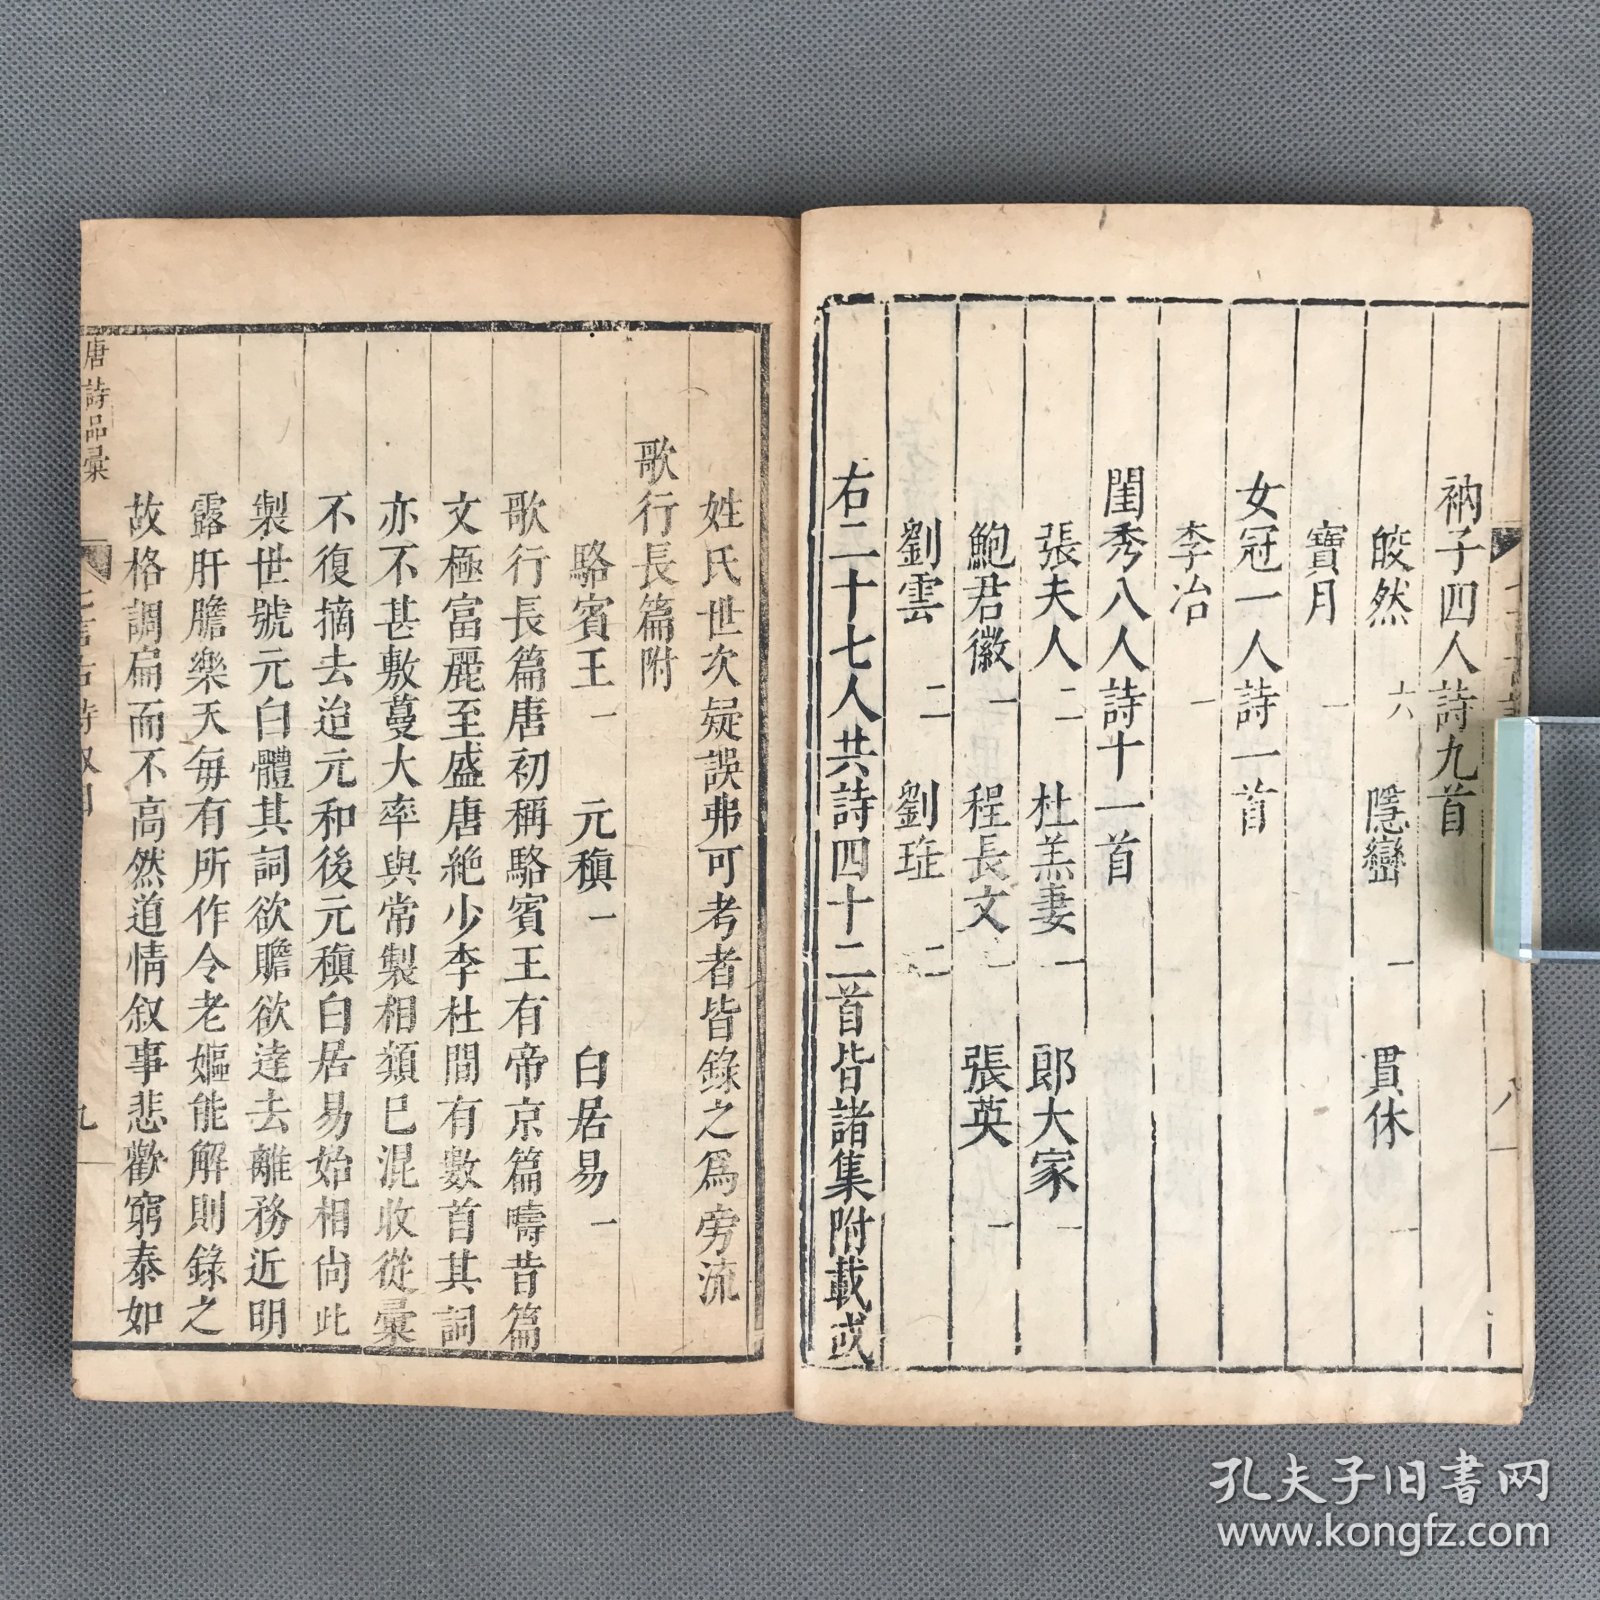 衲子四人詩九首
皎然 六 隱巒 一 貫休 一
寶月 一
女冠一人詩一首
李冶 一
閨秀八人詩十一首
張夫人 二 杜羔妻 一 郎大家 一
鮑君徽 一 程長文 一 張英 一
劉雲 二 劉琁 二
右二十七人共詩四十二首皆諸集附載或
八
姓氏世次疑誤弗可考者皆錄之爲旁流
歌行長篇附
駱賓王 一 元稹 一 白居易 一
歌行長篇唐初稱駱賓王有帝京篇疇昔篇
文極富麗至盛唐絶少李杜間有數首其詞
亦不甚敷蔓大率與常製相類已混收從彙
不復摘去迨元和後元稹白居易始相尙此
製世號元白體其詞欲贍欲達去離務近明
露肝膽樂天每有所作令老嫗能解則錄之
故格調扁而不高然道情叙事悲歡窮泰如
唐詩品彙
七言古詩叙目
九
孔夫子旧书网
www.kongfz.com